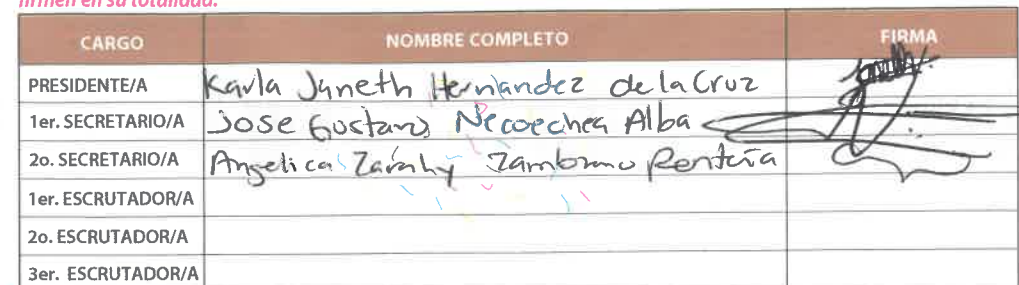 firmen en su totalidad.
CARGO NOMBRE COMPLETO FIRMA
PRESIDENTE/A Karla Janeth Hernandez de la Cruz
1er. SECRETARIO/A Jose Gustavo Necoechea Alba
2o. SECRETARIO/A Angelica Zarahy Zambrano Rentería
1er. ESCRUTADOR/A
2o. ESCRUTADOR/A
3er. ESCRUTADOR/A